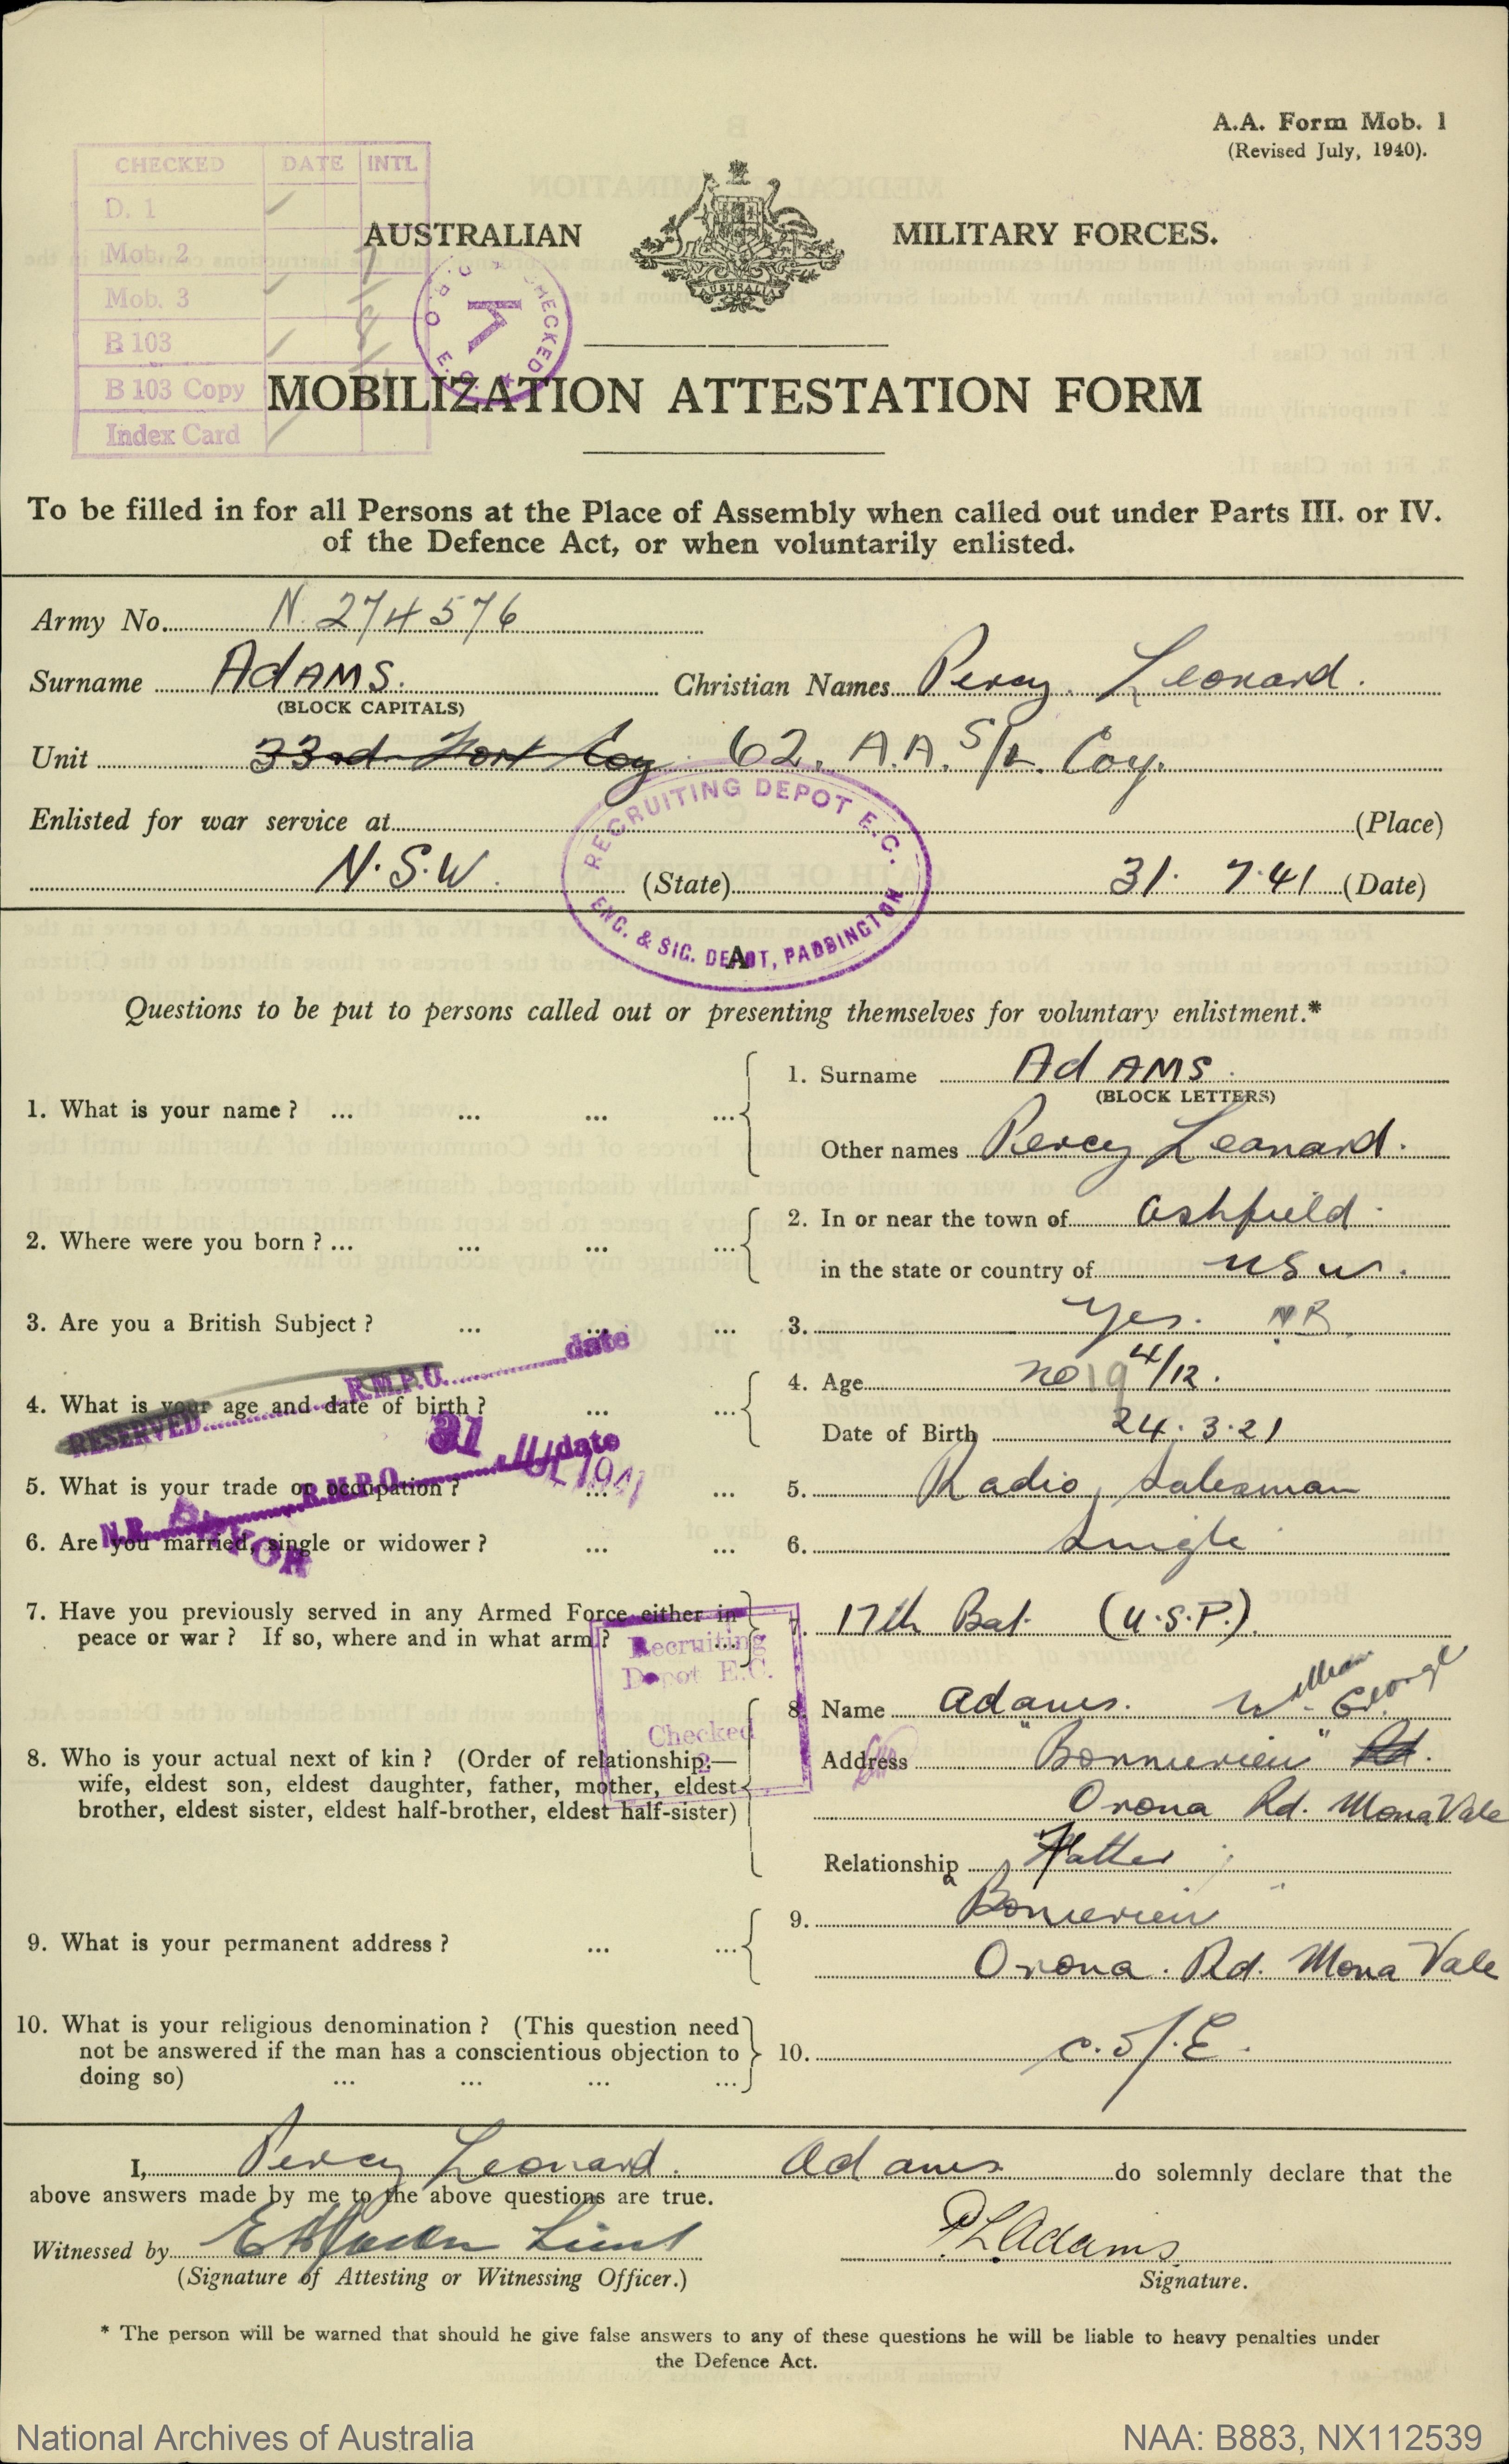 A.A. Form Mob. 1
(Revised July, 1940).
CHECKED DATE INTL
D. 1
Mob. 2
Mob. 3
B 103
B 103 Copy
Index Card
AUSTRALIAN MILITARY FORCES.
AUSTRALIA
CHECKED
MOBILIZATION ATTESTATION FORM
To be filled in for all Persons at the Place of Assembly when called out under Parts III. or IV.
of the Defence Act, or when voluntarily enlisted.
Army No. N 274576
Surname ADAMS. Christian Names Percy Leonard.
(BLOCK CAPITALS)
Unit 33rd Fort Coy 62. A.A. S/L. Coy.
Enlisted for war service at (Place)
N.S.W. (State) 31. 7.41 (Date)
RECRUITING DEPOT E.C.
ENG. & SIG. DEPOT, PADDINGTON
A
Questions to be put to persons called out or presenting themselves for voluntary enlistment.*
1. What is your name? ... ... ... ... 1. Surname ADAMS.
(BLOCK LETTERS)
Other names Percy Leonard.
2. Where were you born? ... ... ... ... 2. In or near the town of Ashfield.
in the state or country of NSW.
3. Are you a British Subject? ... ... ... 3. Yes. NB.
RESERVED R.M.P.O. date
4. What is your age and date of birth? ... ... 4. Age 19 4/12.
Date of Birth 24.3.21
N.R. R.M.P.O. 31 JUL 1941 date
5. What is your trade or occupation? ... ... 5. Radio Salesman
6. Are you married, single or widower? ... ... 6. Single
7. Have you previously served in any Armed Force either in
peace or war? If so, where and in what arm? ... 7. 17th Bat. (U.S.P.).
Recruiting
Depot E.C.
Checked
8. Who is your actual next of kin? (Order of relationship:—
wife, eldest son, eldest daughter, father, mother, eldest
brother, eldest sister, eldest half-brother, eldest half-sister)
8. Name Adams. William George
Address "Bonnieview" Rd.
Orona Rd. Mona Vale
Relationship Father
9. What is your permanent address? ... ... 9. "Bonieview"
Orona. Rd. Mona Vale
10. What is your religious denomination? (This question need
not be answered if the man has a conscientious objection to
doing so) ... ... ... ... 10. C. of E.
I, Percy Leonard. Adams do solemnly declare that the
above answers made by me to the above questions are true.
Witnessed by Lieut P.L.Adams.
(Signature of Attesting or Witnessing Officer.) Signature.
* The person will be warned that should he give false answers to any of these questions he will be liable to heavy penalties under
the Defence Act.
National Archives of Australia NAA: B883, NX112539